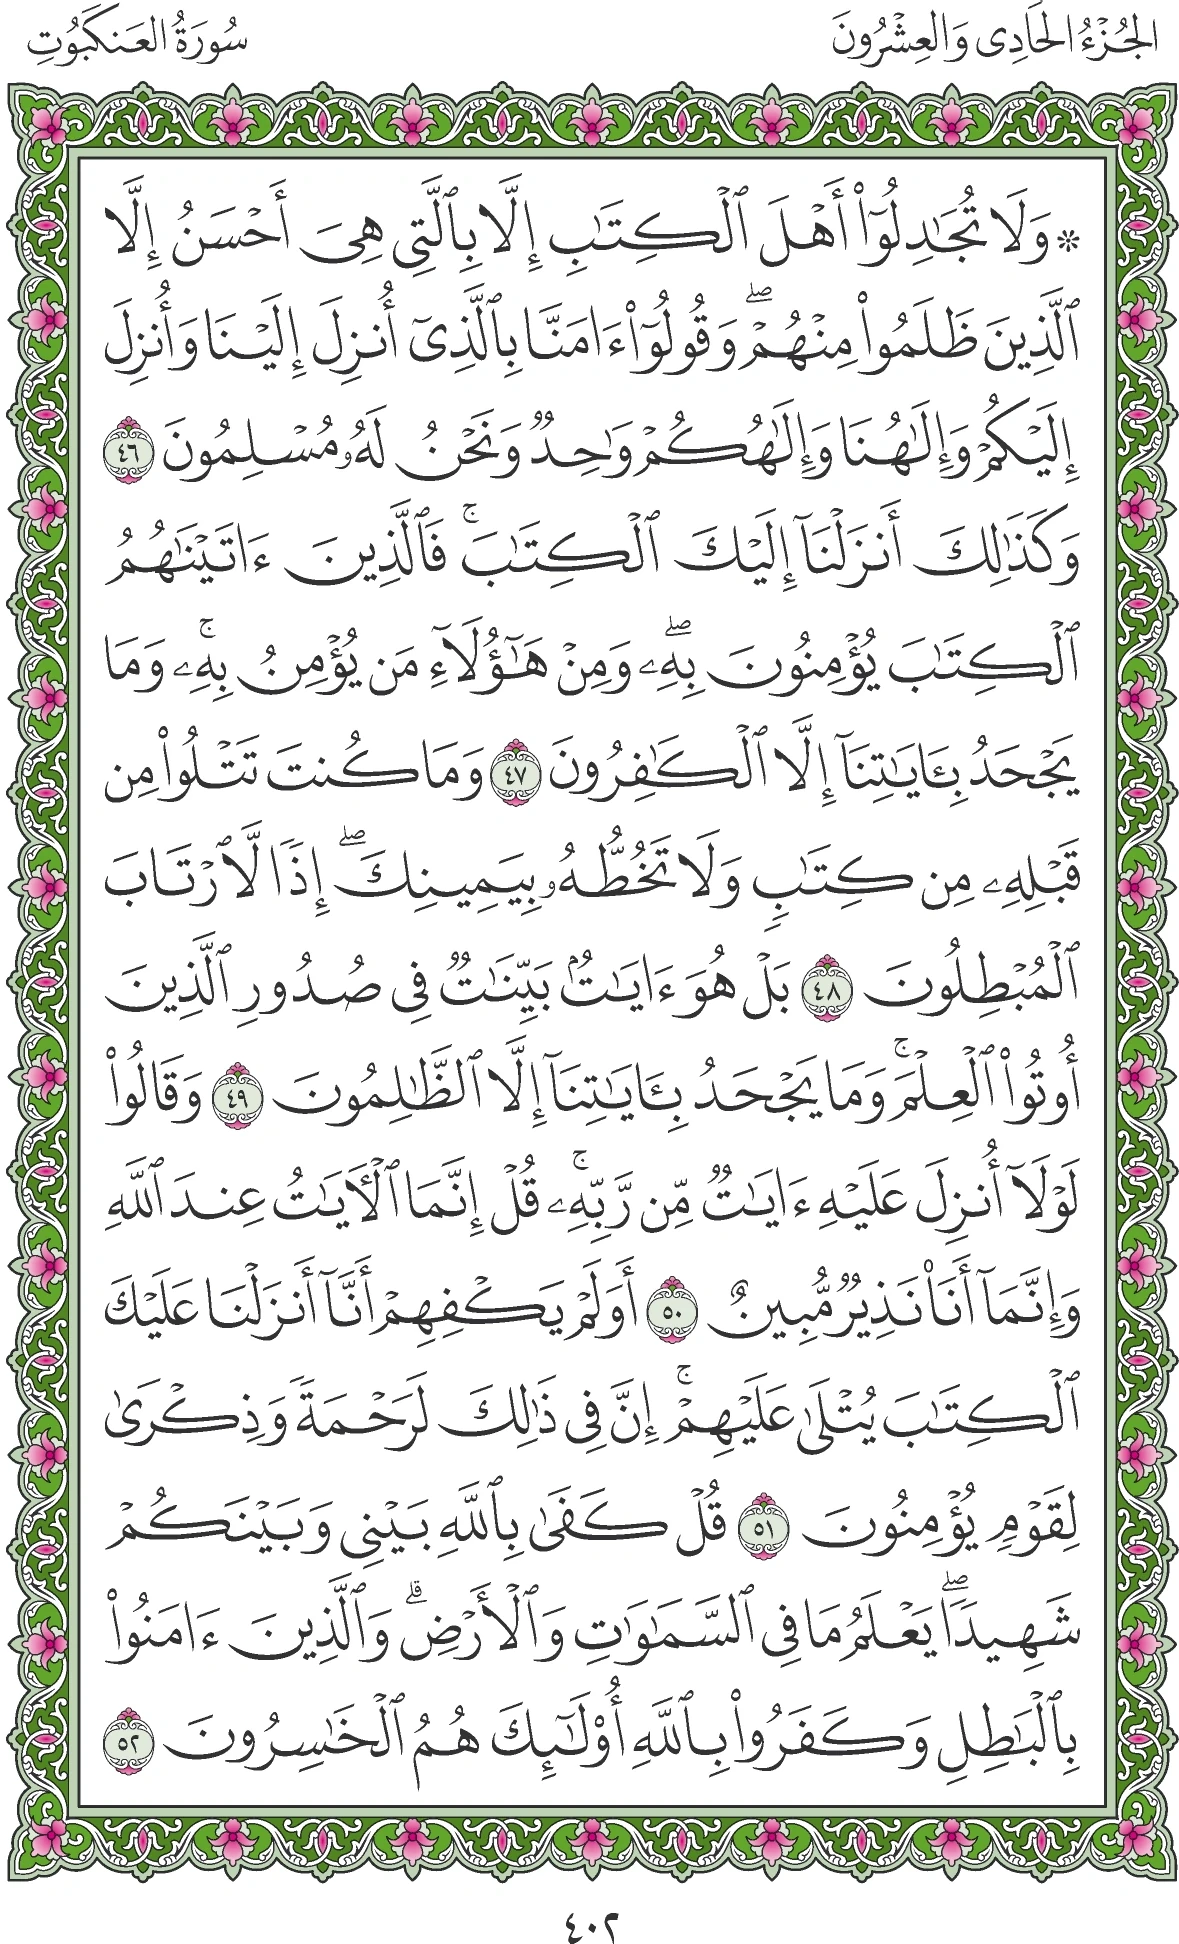 الجُزْءُ الحَادِى وَالعِشْرُونَ
سُورَةُ العَنكَبُوتِ
۞ وَلَا تُجَٰدِلُوٓا۟ أَهْلَ ٱلْكِتَٰبِ إِلَّا بِٱلَّتِى هِىَ أَحْسَنُ إِلَّا
ٱلَّذِينَ ظَلَمُوا۟ مِنْهُمْ ۖ وَقُولُوٓا۟ ءَامَنَّا بِٱلَّذِىٓ أُنزِلَ إِلَيْنَا وَأُنزِلَ
إِلَيْكُمْ وَإِلَٰهُنَا وَإِلَٰهُكُمْ وَٰحِدٌ وَنَحْنُ لَهُۥ مُسْلِمُونَ ٤٦
وَكَذَٰلِكَ أَنزَلْنَآ إِلَيْكَ ٱلْكِتَٰبَ ۚ فَٱلَّذِينَ ءَاتَيْنَٰهُمُ
ٱلْكِتَٰبَ يُؤْمِنُونَ بِهِۦ ۖ وَمِنْ هَٰٓؤُلَآءِ مَن يُؤْمِنُ بِهِۦ ۚ وَمَا
يَجْحَدُ بِـَٔايَٰتِنَآ إِلَّا ٱلْكَٰفِرُونَ ٤٧ وَمَا كُنتَ تَتْلُوا۟ مِن
قَبْلِهِۦ مِن كِتَٰبٍ وَلَا تَخُطُّهُۥ بِيَمِينِكَ ۖ إِذًا لَّٱرْتَابَ
ٱلْمُبْطِلُونَ ٤٨ بَلْ هُوَ ءَايَٰتٌۢ بَيِّنَٰتٌ فِى صُدُورِ ٱلَّذِينَ
أُوتُوا۟ ٱلْعِلْمَ ۚ وَمَا يَجْحَدُ بِـَٔايَٰتِنَآ إِلَّا ٱلظَّٰلِمُونَ ٤٩ وَقَالُوا۟
لَوْلَآ أُنزِلَ عَلَيْهِ ءَايَٰتٌ مِّن رَّبِّهِۦ ۚ قُلْ إِنَّمَا ٱلْـَٔايَٰتُ عِندَ ٱللَّهِ
وَإِنَّمَآ أَنَا۠ نَذِيرٌ مُّبِينٌ ٥٠ أَوَلَمْ يَكْفِهِمْ أَنَّآ أَنزَلْنَا عَلَيْكَ
ٱلْكِتَٰبَ يُتْلَىٰ عَلَيْهِمْ ۚ إِنَّ فِى ذَٰلِكَ لَرَحْمَةً وَذِكْرَىٰ
لِقَوْمٍ يُؤْمِنُونَ ٥١ قُلْ كَفَىٰ بِٱللَّهِ بَيْنِى وَبَيْنَكُمْ
شَهِيدًا ۖ يَعْلَمُ مَا فِى ٱلسَّمَٰوَٰتِ وَٱلْأَرْضِ ۗ وَٱلَّذِينَ ءَامَنُوا۟
بِٱلْبَٰطِلِ وَكَفَرُوا۟ بِٱللَّهِ أُو۟لَٰٓئِكَ هُمُ ٱلْخَٰسِرُونَ ٥٢
٤٠٢